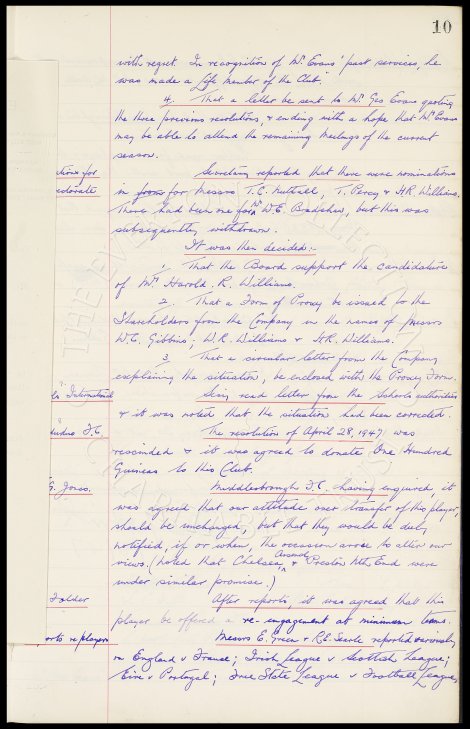 10
with regret. In recognition of Mr Evans' past services, he
was made a Life Member of the Club.
4. That a letter be sent to Mr. Geo Evans quoting
the three previous resolutions, & ending with a hope that Mr Evans
may be able to attend the remaining Meetings of the current
season.
ations for
Secretary reported that there were nominations
ectorate
in from for Messrs T.C. Nuttall, T. Percy & H.R. Williams.
There had been one for Mr W.E. Bradshaw, but this was
subsequently withdrawn.
It was then decided:-
1. That the Board support the candidature
of Mr. Harold. R. Williams.
2. That a Form of Proxy be issued to the
Shareholders from the Company in the names of Messrs
W.C. Gibbins, W.R. Williams & H.R. Williams.
3. That a circular letter from the Company
explaining the situation, be enclosed with the Proxy Form.
International
Secy. read letter from the Schools authorities
& it was noted that the situation had been corrected.
F.C.
The resolution of April 28, 1947, was
rescinded & it was agreed to donate One Hundred
Guineas to this Club.
G. Jones.
Middlesbrough F.C. having enquired, it
was agreed that our attitude over transfer of this player,
should be unchanged, but that they would be duly
notified, if or when, the occasion arose to alter our
views. (noted that Chelsea, Arsenal & Preston Nth End were
under similar promise.)
Folder
After reports, it was agreed that this
player be offered a re-engagement at minimum terms.
orts re players
Messrs E. Green & R.E. Searle reported variously
on England v France; Irish League v Scottish League;
Eire v Portugal; Free State League v Football League,